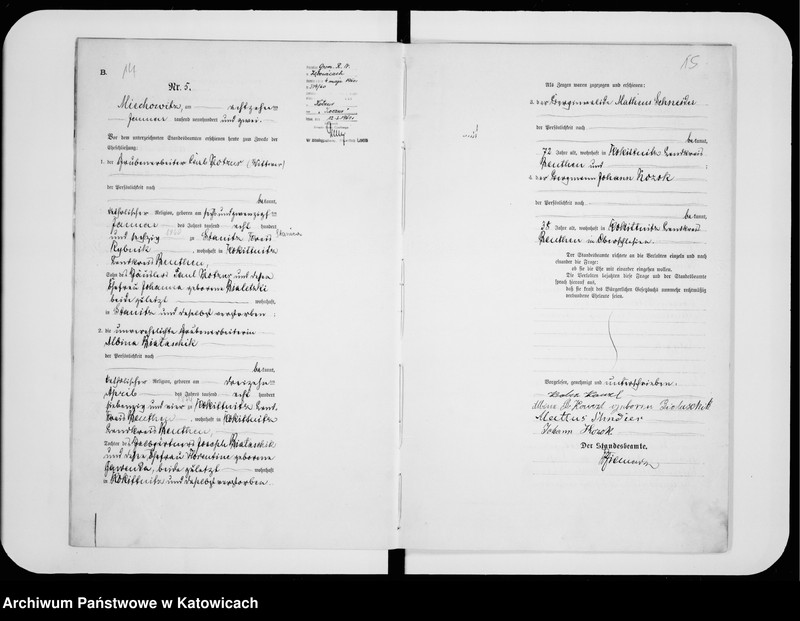 B.
14
Nr. 5.
Miechowitz, am achtzehnten
Januar tausend neunhundert und zwei.
Vor dem unterzeichneten Standesbeamten erschienen heute zum Zwecke der
Eheschließung:
1. der Grubenarbeiter Carl (Wittwer)
der Persönlichkeit nach
bekannt,
katholischer Religion, geboren am
Januar des Jahres tausend acht hundert
und sechzig zu Stanitz Kreis
Rybnik, wohnhaft in Rokittnitz
Landkreis Beuthen,
Sohn des Häuslers Carl und dessen
Ehefrau Johanna geborene
beide zuletzt wohnhaft
in Stanitz und daselbst verstorben;
2. die unverehelichte Grubenarbeiterin
Albina Bialaschik
der Persönlichkeit nach
bekannt,
katholischer Religion, geboren am dreizehnten
April des Jahres tausend acht hundert
siebenzig und vier zu Rokittnitz Land-
kreis Beuthen, wohnhaft in Rokittnitz
Landkreis Beuthen,
Tochter des Joseph Bialaschik
und dessen Ehefrau Florentine geborene
Gawenda, beide zuletzt wohnhaft
in Rokittnitz und daselbst verstorben.
15
Als Zeugen waren zugezogen und erschienen:
3. der Mathias Schneider
der Persönlichkeit nach
bekannt,
72 Jahre alt, wohnhaft in Rokittnitz Landkreis
Beuthen und;
4. der Bergmann Johann Kozok
der Persönlichkeit nach
bekannt,
38 Jahre alt, wohnhaft in Rokittnitz Landkreis
Beuthen in Oberschlesien.
Der Standesbeamte richtete an die Verlobten einzeln und nach
einander die Frage:
ob sie die Ehe mit einander eingehen wollen.
Die Verlobten bejahten diese Frage und der Standesbeamte
sprach hierauf aus,
daß sie kraft des Bürgerlichen Gesetzbuchs nunmehr rechtmäßig
verbundene Eheleute seien.
Vorgelesen, genehmigt und unterschrieben.
geboren Bialaschik
Johann Kozok
Der Standesbeamte.
Archiwum Państwowe w Katowicach